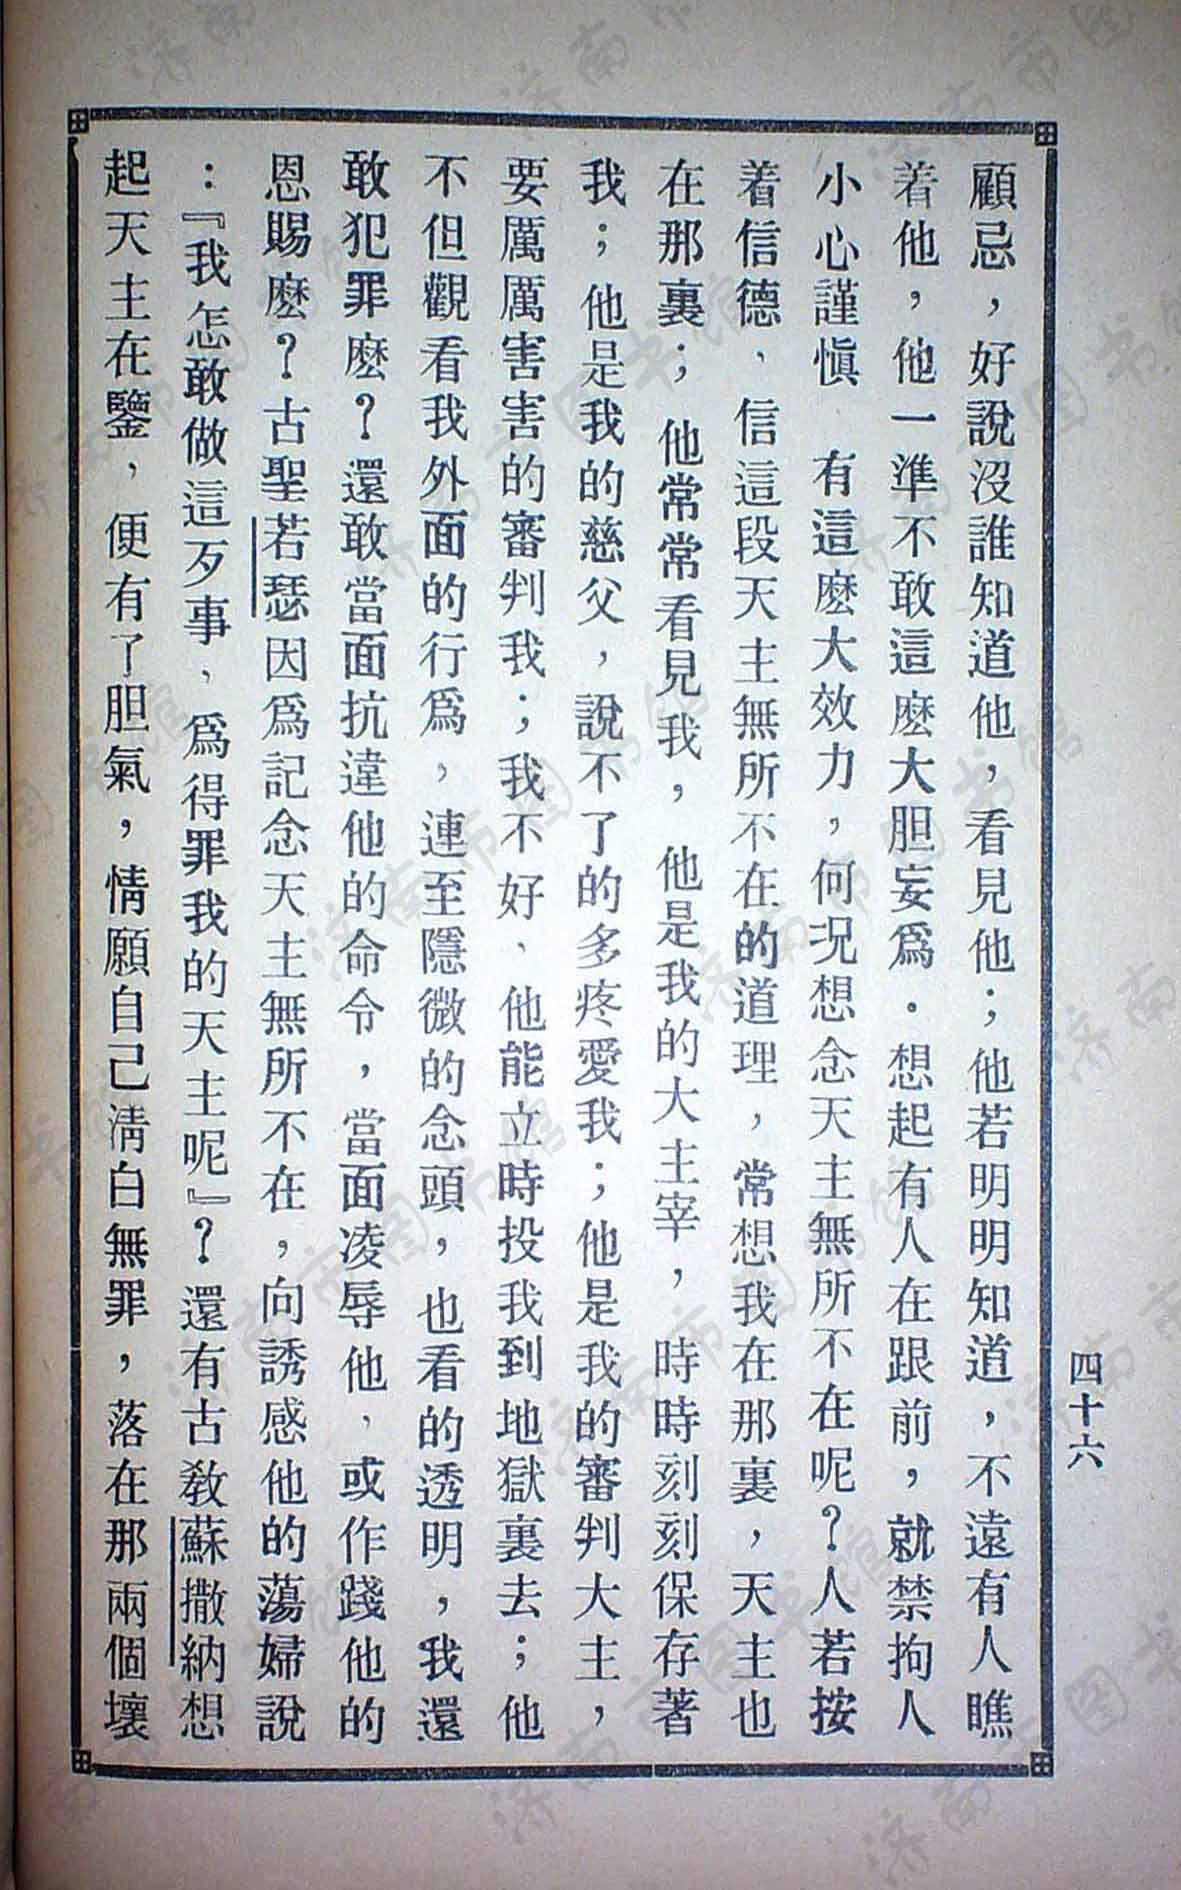 四十六
顧忌，好說沒誰知道他，看見他；他若明明知道，不遠有人瞧
着他，他一準不敢這麽大胆妄爲。想起有人在跟前，就禁拘人
小心謹愼　有這麽大效力，何況想念天主無所不在呢？人若按
着信德、信這段天主無所不在的道理，常想我在那裏，天主也
在那裏；他常常看見我，他是我的大主宰，時時刻刻保存著
我；他是我的慈父，說不了的多疼愛我；他是我的審判大主，
要厲厲害害的審判我；我不好、他能立時投我到地獄裏去；他
不但觀看我外面的行爲，連至隱微的念頭，也看的透明，我還
敢犯罪麽？還敢當面抗違他的命令，當面凌辱他、或作踐他的
恩賜麽？古聖若瑟因爲記念天主無所不在，向誘感他的蕩婦說
：『我怎敢做這歹事、爲得罪我的天主呢』？還有古敎蘇撒納想
起天主在鑒，便有了胆氣，情願自己淸白無罪，落在那兩個壞